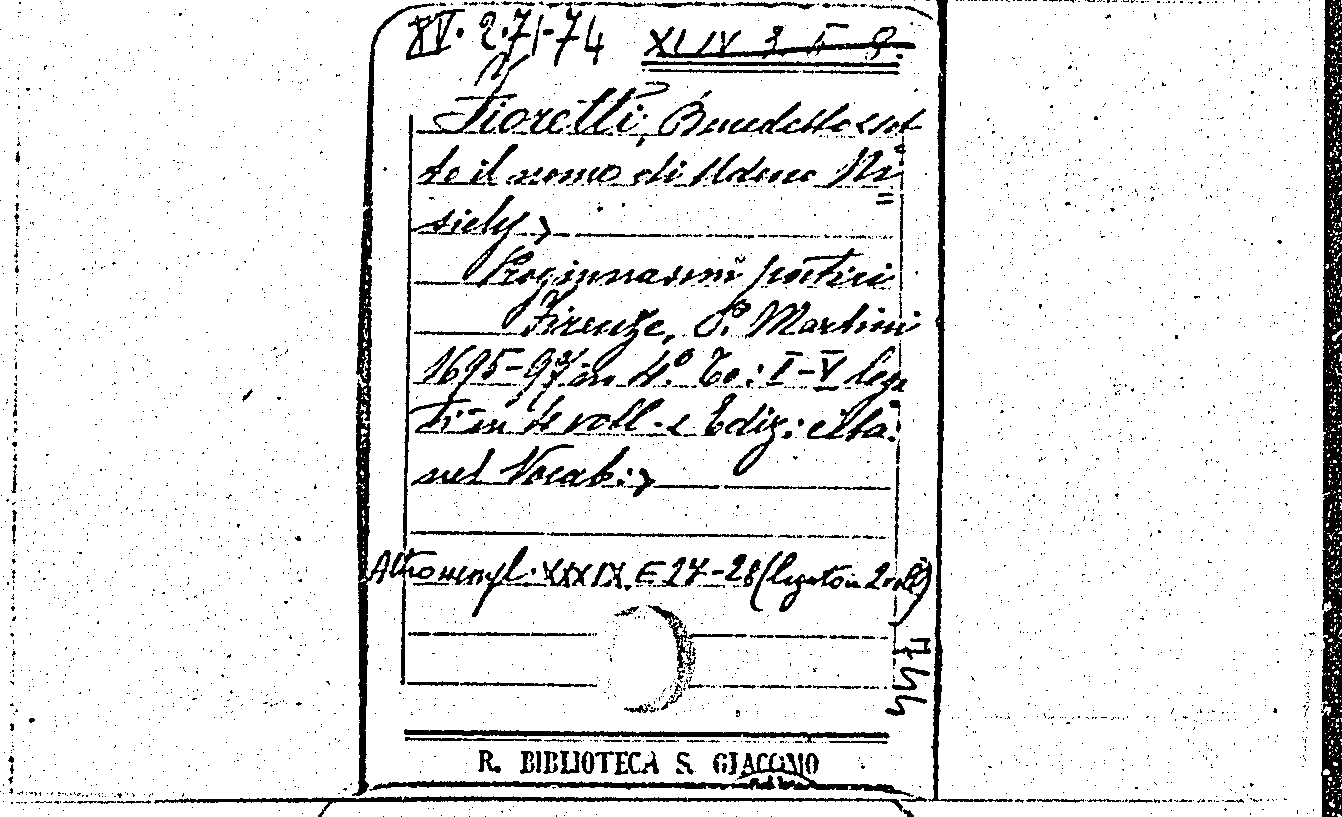 XV. 2.71-74 XLIV 3. I 8.
Fioretti, Benedetto < sot
to il nome di Udeno Ni=
siely >
Proginnasmi poetici
Firenze, P. Martini
1695-97 in 4.° To: I-V lega
ti in 4 voll. < Ediz: cita:
nel Vocab: >
Altro esempl. XXXIX. E 27-28 (legato in 2 voll)
744
R. BIBLIOTECA S. GIACOMO